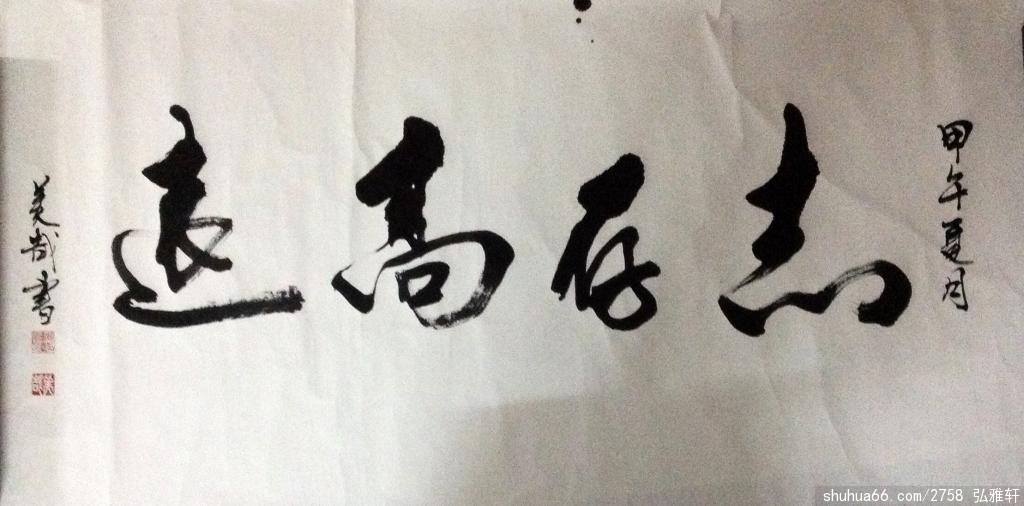 甲午夏月
志存高远
美哉書
shuhua66.com/2758 弘雅轩